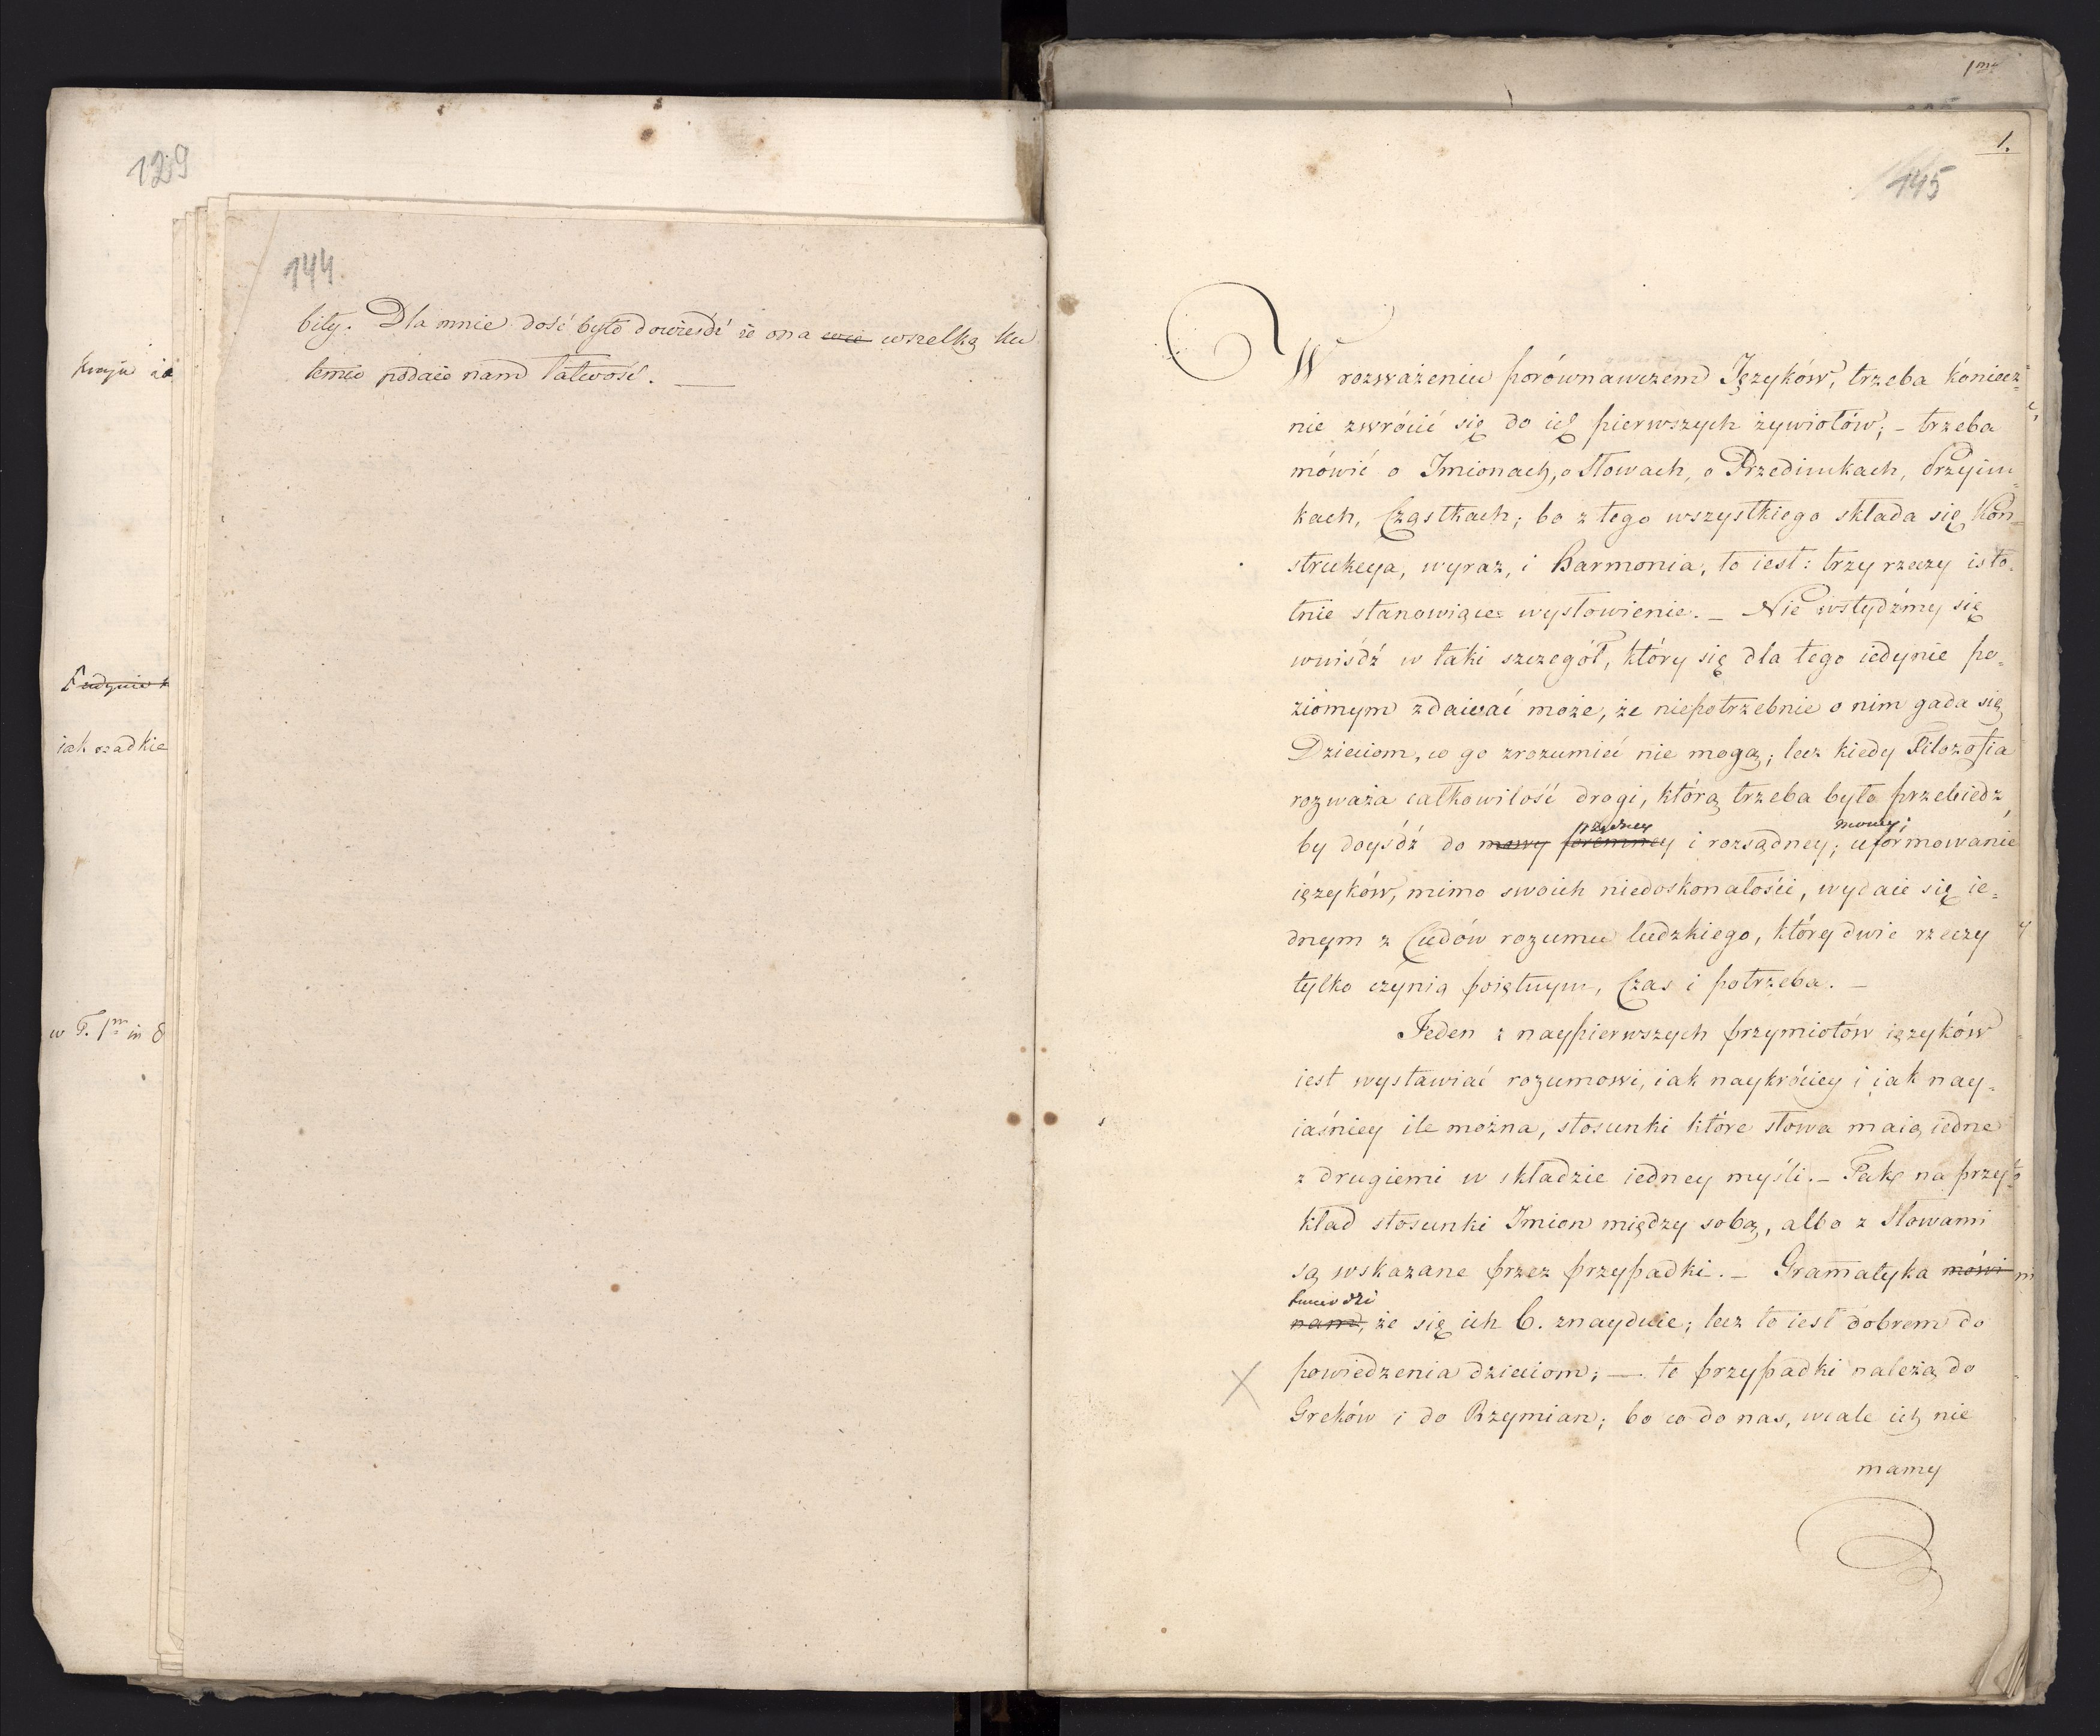 129
kraju ia
iak rzadkie
w T. 1m in 8
144
biły. Dla mnie dość było dowieśdź że ona wszelką ku
temu podaie nam łatwość. —
1my
1.
145
W rozważeniu porównawczém Języków, trzeba koniecz=
nie zwrócić się do ich pierwszych żywiołów; – trzeba
mówić o Imionach, o Słowach, o Przedimkach, Przyim=
kach, Cząstkach; bo z tego wszystkiego składa się Kon=
strukcya, wyraz, i Harmonia, to iest: trzy rzeczy isto=
tnie stanowiące wysłowienie. – Nie wstydźmy się
wniśdź w taki szczegół, który się dla tego iedynie po=
ziomym zdawać może, że niepotrzebnie o nim gada się
Dzieciom, co go zrozumieć nie mogą; lecz kiedy Filozofia
rozważa całkowitość drogi, którą trzeba było przebiedz
rządney mowy;
by doyśdź do mowy foremney i rozsądney; uformowanie
ięzyków, mimo swoich niedoskonałości, wydaie się ie=
dnym z Cudów rozumu ludzkiego, który dwie rzeczy
tylko czynią poiętnym, Czas i potrzeba. –
Jeden z naypierwszych przymiotów ięzyków
iest wystawiać rozumowi, iak naykrócey i iak nay=
iaśniey ile można, stosunki które słowa maią iedne
z drugiemi w składzie iedney myśli. – Tak na przy=
kład stosunki Imion między sobą, albo z Słowami
są wskazane przez przypadki. – Gramatyka mówi
twierdzi
nam, że się ich 6. znayduie; lecz to iest dobrem do
powiedzenia dzieciom; — te przypadki należą do
Greków i do Rzymian; bo co do nas, wcale ich nie
mamy